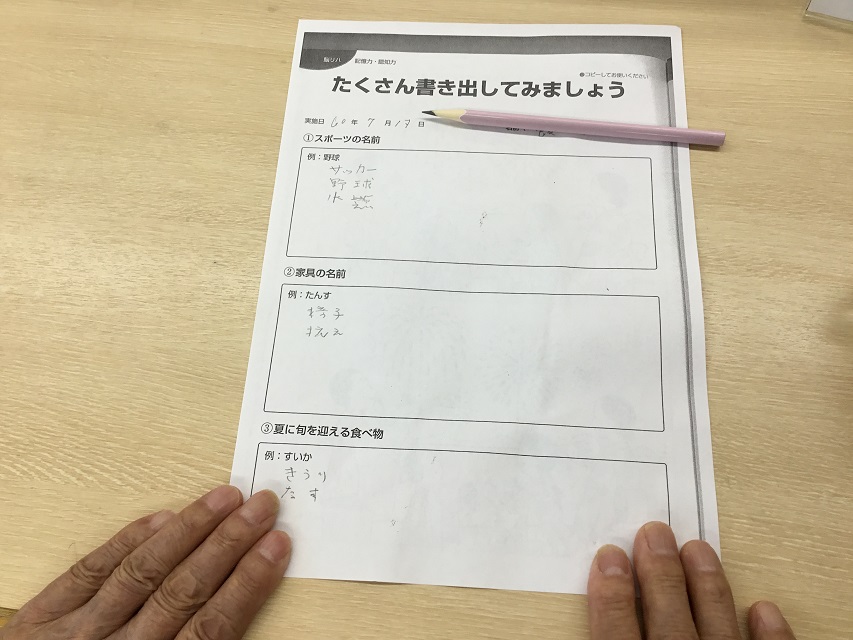 脳リハ 記憶力・認知力
●コピーしてお使いください
たくさん書き出してみましょう
実施日 60 年 7 月 17 日
①スポーツの名前
例：野球
サッカー
野球
水
②家具の名前
例：たんす
椅子
③夏に旬を迎える食べ物
例：すいか
きうり
なす